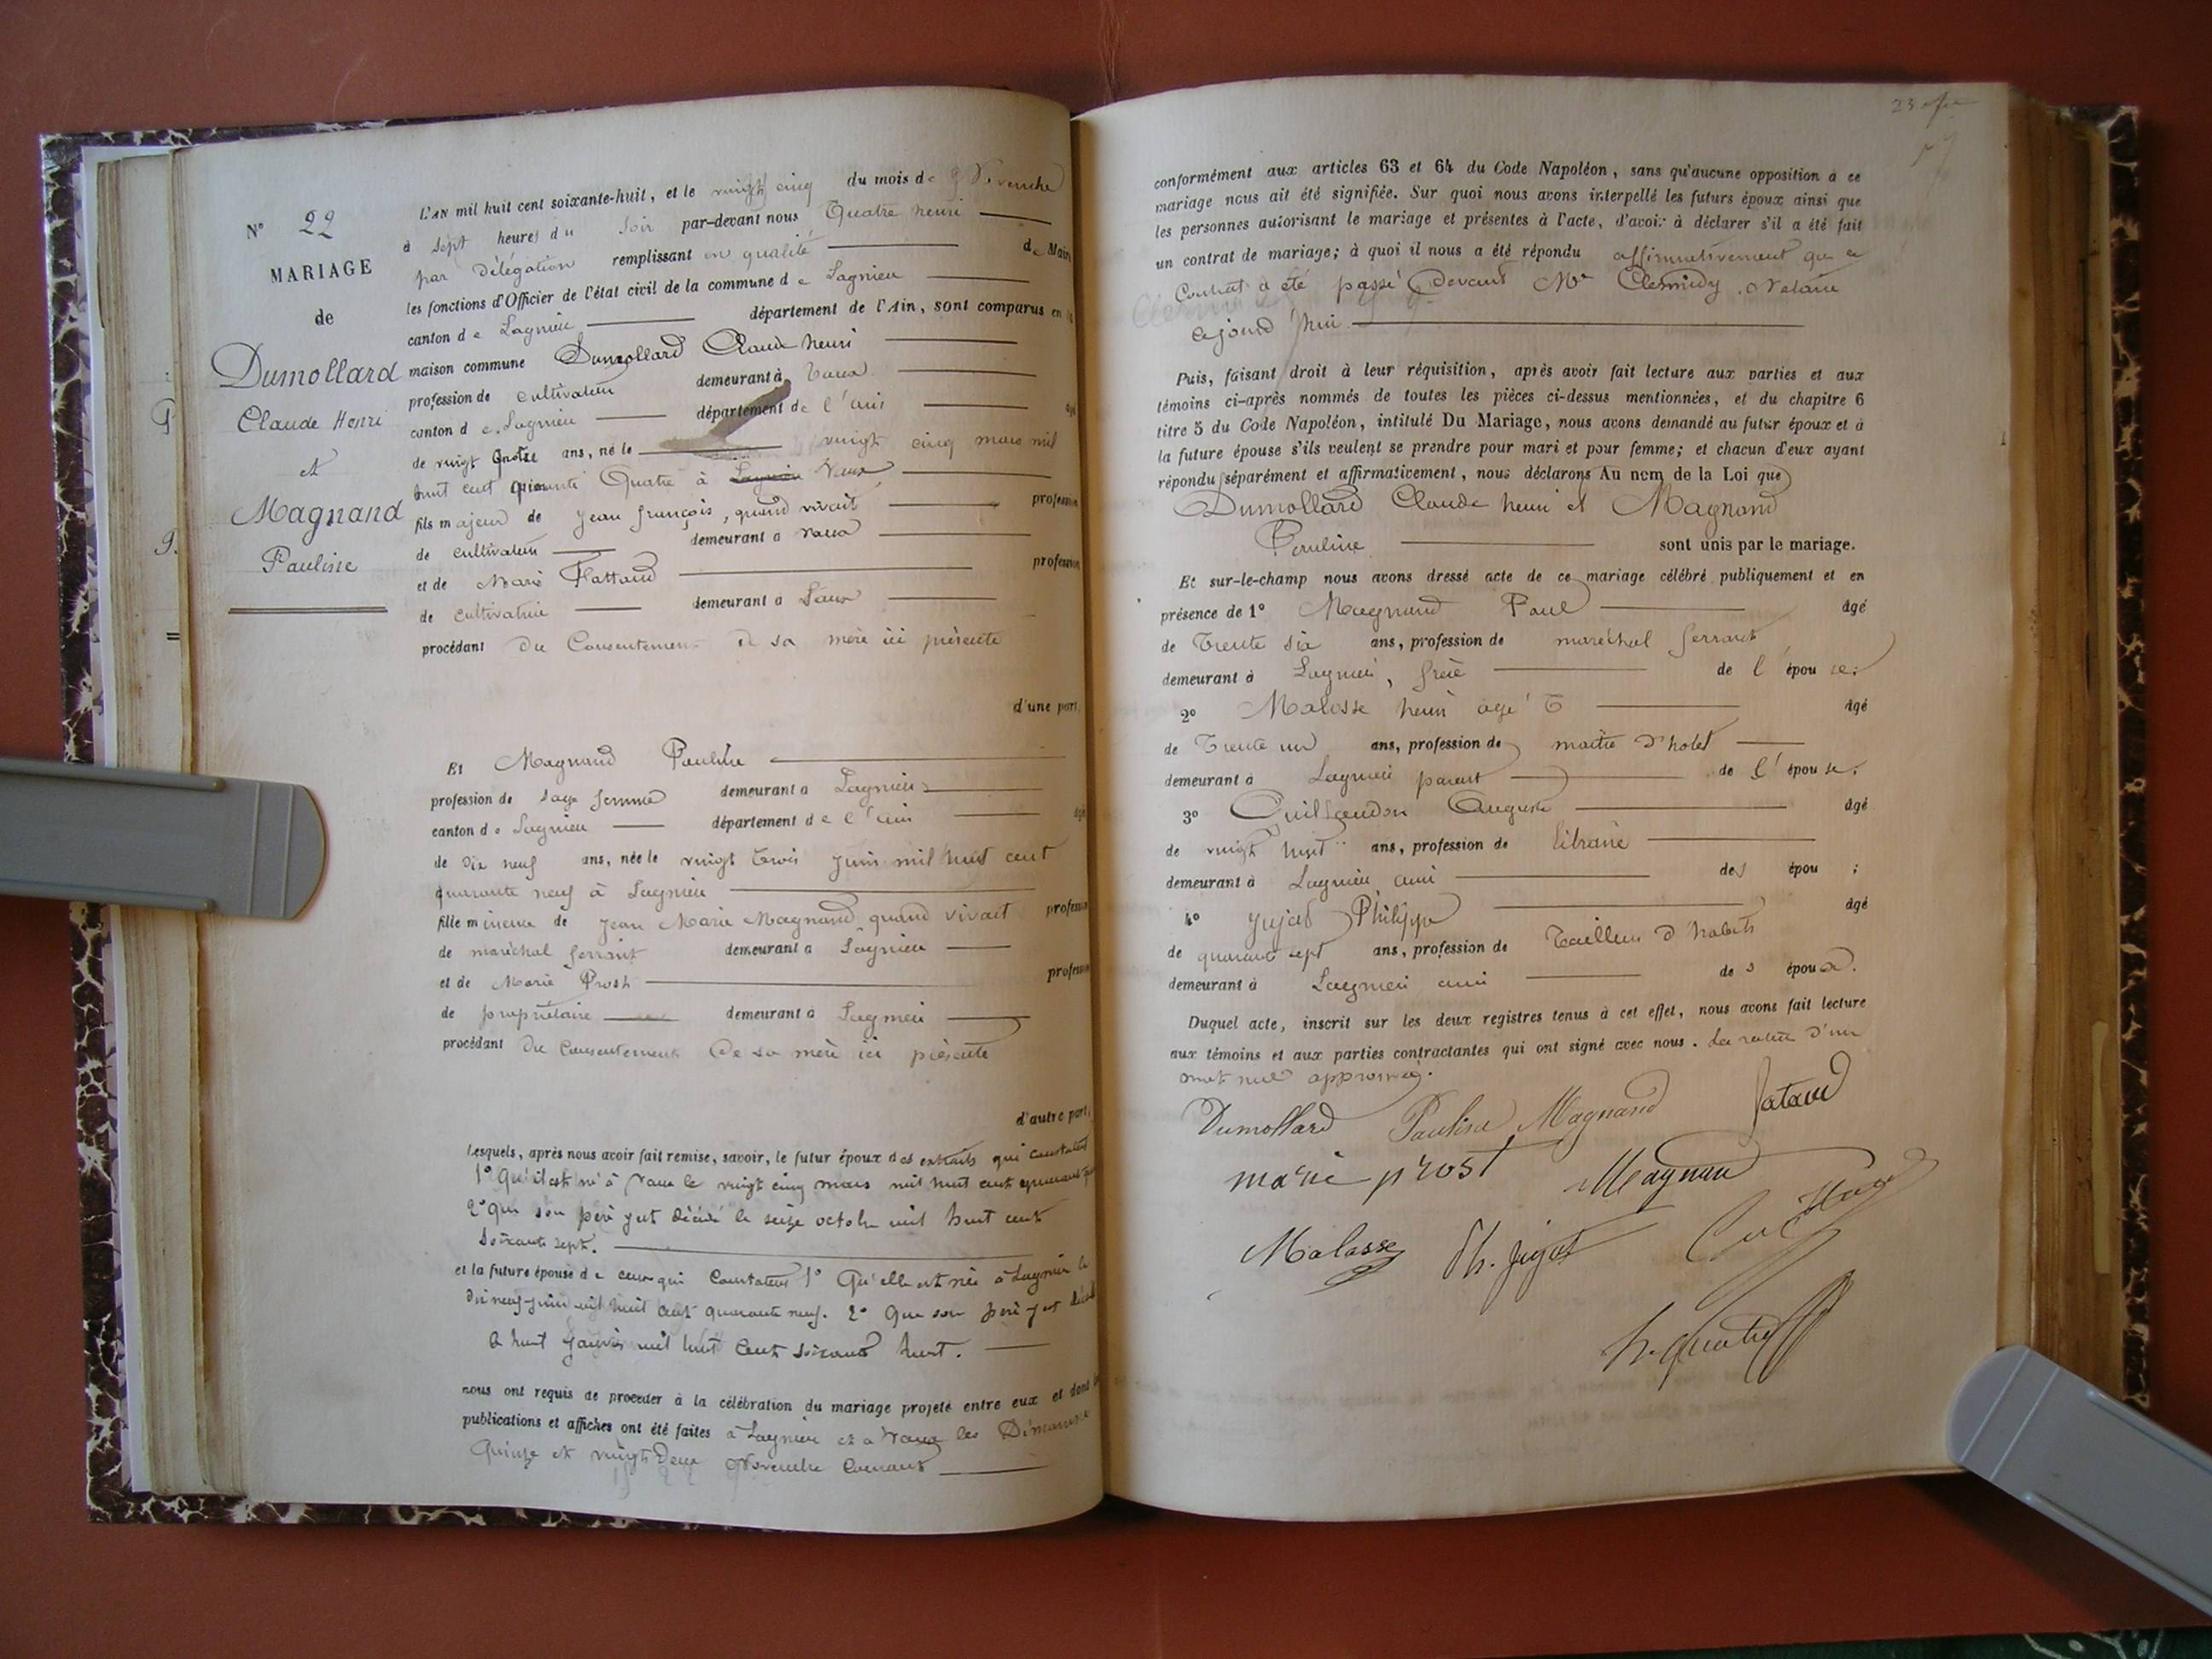 N° 22
MARIAGE
de
Dumollard
Claude Henri
et
Magnand
Pauline
L'AN mil huit cent soixante-huit, et le vingt cinq du mois de Novembre
à sept heures du soir par-devant nous Quatre henri
par Délégation remplissant en qualité de Maire
les fonctions d'Officier de l'état civil de la commune de Lagnieu
canton de Lagnieu département de l'Ain, sont comparus en la
maison commune Dumollard Claude henri
profession de cultivateur demeurant à Vaux
canton de Lagnieu département de l'ain âgé
de vingt quatre ans, né le vingt cinq mars mil
huit cent quarante Quatre à Lagnieu Vaux
fils majeur de Jean françois, quand vivait profession
de cultivateur demeurant à Vaux
et de Marie Fattaud profession
de cultivatrice demeurant à Vaux
procédant du Consentement de sa mère ici présente
d'une part,
Et Magnand Pauline
profession de sage femme demeurant à Lagnieu
canton de Lagnieu département de l'ain âgé
de dix neuf ans, née le vingt trois juin mil huit cent
quarante neuf à Lagnieu
fille mineure de Jean Marie Magnand quand vivait profession
de maréchal ferrant demeurant à Lagnieu
et de Marie Prost profession
de propriétaire demeurant à Lagnieu
procédant du Consentement de sa mère ici présente
d'autre part,
Lesquels, après nous avoir fait remise, savoir, le futur époux des extraits qui constatent
1° Qu'il est né à Vaux le vingt cinq mars mil huit cent quarante
2° que son père y est décédé le seize octobre mil huit cent
soixante sept.
et la future épouse de ceux qui constatent 1° Qu'elle est née à Lagnieu le
dix neuf juin mil huit cent quarante neuf. 2° Que son père y est décédé
le huit janvier mil huit cent soixante huit.
nous ont requis de procéder à la célébration du mariage projeté entre eux et dont les
publications et affiches ont été faites à Lagnieu et à Vaux les Dimanche
Quinze et vingt Deux Novembre Courant
23
conformément aux articles 63 et 64 du Code Napoléon, sans qu'aucune opposition à ce
mariage nous ait été signifiée. Sur quoi nous avons interpellé les futurs époux ainsi que
les personnes autorisant le mariage et présentes à l'acte, d'avoir à déclarer s'il a été fait
un contrat de mariage; à quoi il nous a été répondu affirmativement que ce
Contrat a été passé devant Me Clermidy Notaire
cejourd'hui
Puis, faisant droit à leur réquisition, après avoir fait lecture aux parties et aux
témoins ci-après nommés de toutes les pièces ci-dessus mentionnées, et du chapitre 6
titre 5 du Code Napoléon, intitulé Du Mariage, nous avons demandé au futur époux et à
la future épouse s'ils veulent se prendre pour mari et pour femme; et chacun d'eux ayant
répondu séparément et affirmativement, nous déclarons Au nom de la Loi que
Dumollard Claude henri et Magnand
Pauline sont unis par le mariage.
Et sur-le-champ nous avons dressé acte de ce mariage célébré publiquement et en
présence de 1° Magnand Paul âgé
de Trente six ans, profession de maréchal ferrant
demeurant à Lagnieu, frère de l'épouse;
2° Malosse henri âgé âgé
de Trente un ans, profession de maître d'hotel
demeurant à Lagnieu parent de l'épouse;
3° Auguste âgé
de vingt huit ans, profession de libraire
demeurant à Lagnieu, ami des épou ;
4° Jujat Philippe âgé
de quarante sept ans, profession de Tailleur d'habits
demeurant à Lagnieu ami des époux.
Duquel acte, inscrit sur les deux registres tenus à cet effet, nous avons fait lecture
aux témoins et aux parties contractantes qui ont signé avec nous. La rature d'un
mot nul approuvée.
Dumollard Pauline Magnand fataud
marie prost Magnan
Malosse Ph. Jujat
h. Quatre